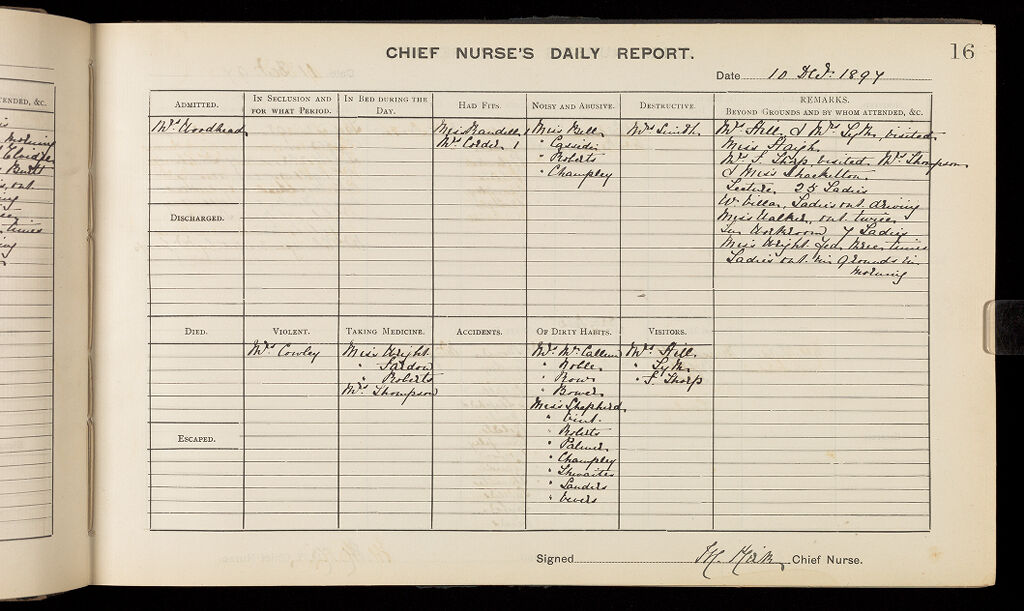 TENDED, &C.
CHIEF NURSE'S DAILY REPORT.
16
Date 10 Dec. 1897
ADMITTED.
IN SECLUSION AND FOR WHAT PERIOD.
IN BED DURING THE DAY.
HAD FITS.
NOISY AND ABUSIVE.
DESTRUCTIVE.
REMARKS.
BEYOND GROUNDS AND BY WHOM ATTENDED, &C.
Mrs Woodhead
Miss Mandell 1
Mrs Corder 1
Miss Bell
" Cassidi
" Roberts
" Champley
Mrs Smith
Mrs Hill & Mrs Syke, visited
Miss Haigh
Mrs S. Tharp visited Mrs Thompson
& Miss Shackelton
Lecture 25 Ladies
W. Villa, Ladies out driving
Miss Walker, out twice
In Workroom 7 Ladies
Miss Wright fed three times
Ladies out in Grounds in
morning
DISCHARGED.
DIED.
VIOLENT.
TAKING MEDICINE.
ACCIDENTS.
OF DIRTY HABITS.
VISITORS.
Mrs Cowley
Miss Wright
" Roberts
Mrs Thompson
Mrs McCallum
" Noble
" Rows
" Bower
Miss Shepherd
" Vint
" Roberts
" Palmer
" Champley
" Thwaites
" Sanders
" Vevers
Mrs Hill
" Syke
" S. Tharp
ESCAPED.
Signed
Chief Nurse.